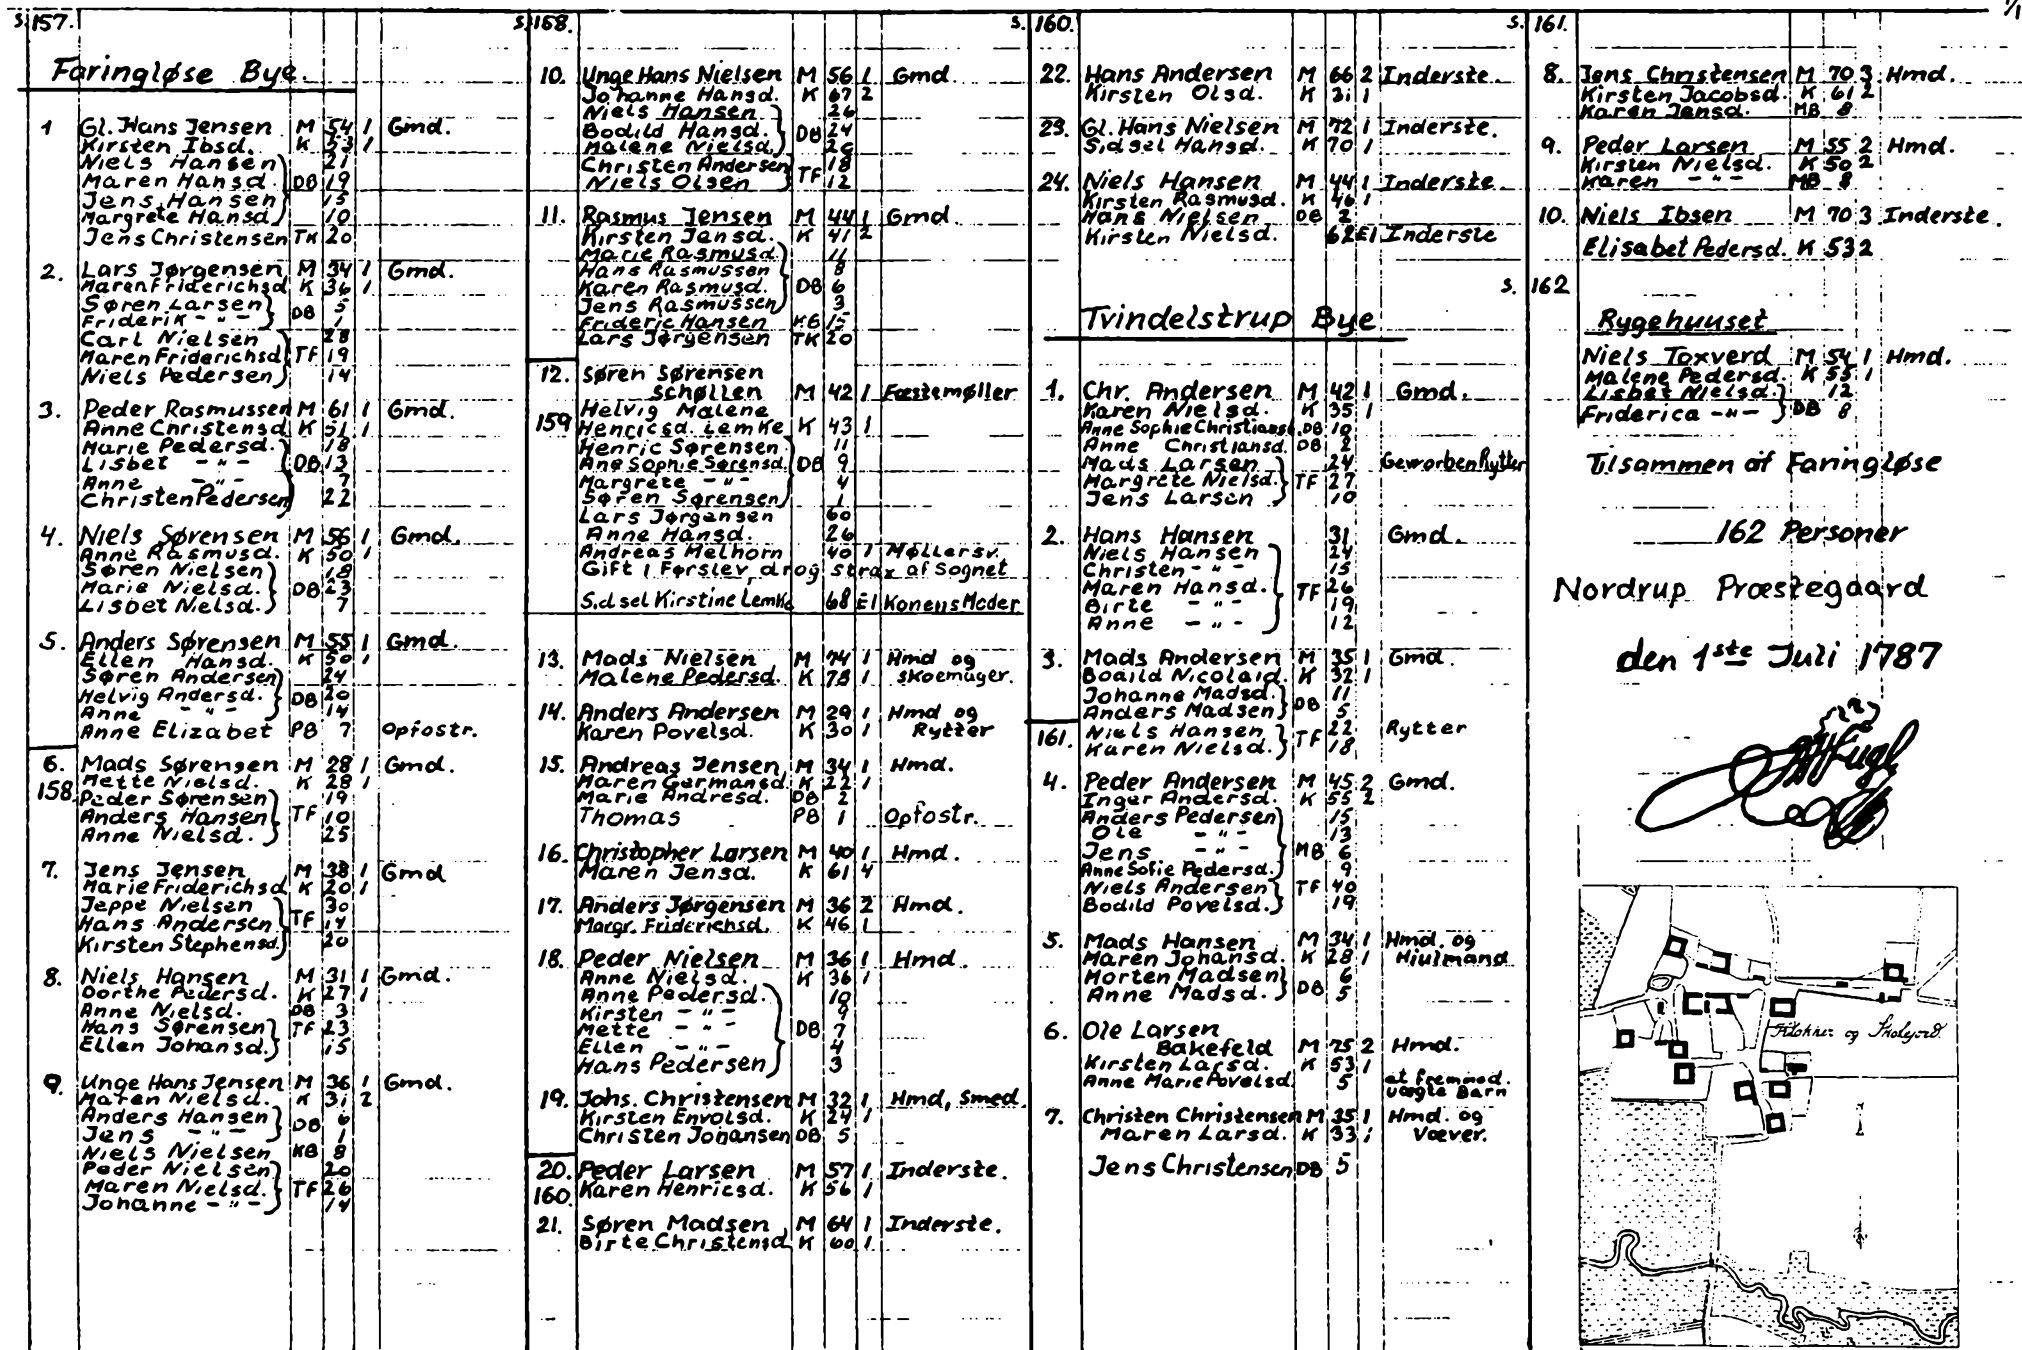 S. 157.
Faringløse Bye.
1 Gl. Hans Jensen M 54 1 Gmd.
Kirsten Ibsd. K 53 1
Niels Hansen 21
Maren Hansd. DB 19
Jens Hansen 15
Margrete Hansd. 10
Jens Christensen TK 20
2. Lars Jørgensen M 34 1 Gmd.
Maren Friderichsd K 36 1
Søren Larsen 5
Friderik -"- DB 1
Carl Nielsen 28
Maren Friderichsd TF 19
Niels Pedersen 14
3. Peder Rasmussen M 61 1 Gmd.
Anne Christensd K 51 1
Marie Pedersd. 18
Lisbet -"- DB 13
Anne -"- 7
Christen Pedersen 22
4. Niels Sørensen M 56 1 Gmd.
Anne Rasmusd. K 50 1
Søren Nielsen 18
Marie Nielsd. DB 23
Lisbet Nielsd. 7
5. Anders Sørensen M 55 1 Gmd.
Ellen Hansd. K 50 1
Søren Andersen 24
Helvig Andersd. DB 20
Anne -"- 14
Anne Elizabet PB 7 Opfostr.
6. Mads Sørensen M 28 1 Gmd.
158 Mette Nielsd. K 28 1
Peder Sørensen 19
Anders Hansen TF 10
Anne Nielsd. 25
7. Jens Jensen M 38 1 Gmd
Marie Friderichsd K 20 1
Jeppe Nielsen 30
Hans Andersen TF 14
Kirsten Stephensd. 20
8. Niels Hansen M 31 1 Gmd.
Dorthe Pedersd. K 27 1
Anne Nielsd. DB 3
Hans Sørensen TF 23
Ellen Johansd. 15
9. Unge Hans Jensen M 36 1 Gmd.
Maren Nielsd. K 31 2
Anders Hansen 6
Jens -"- DB 1
Niels Nielsen KB 8
Peder Nielsen 20
Maren Nielsd. TF 26
Johanne -"- 14
S. 158.
10. Unge Hans Nielsen M 56 1 Gmd.
Johanne Hansd. K 67 2
Niels Hansen 26
Bodild Hansd. DB 24
Malene Nielsd. 26
Christen Andersen 18
Niels Olsen TF 12
11. Rasmus Jensen M 44 1 Gmd.
Kirsten Jensd. K 41 2
Marie Rasmusd. 11
Hans Rasmussen 8
Karen Rasmusd. DB 6
Jens Rasmussen 3
Frideric Hansen KB 15
Lars Jørgensen TK 20
12. Søren Sørensen
Schøllen M 42 1 Fæstemøller
159 Helvig Malene
Henricsd. Lemke K 43 1
Henric Sørensen 11
Ane Sophie Sørensd. DB 9
Margrete -"- 4
Søren Sørensen 1
Lars Jørgensen 60
Anne Hansd. 26
Andreas Melhorn 40 1 Møllersv.
Gift i Førslev, drog strax af Sognet
Sidsel Kirstine Lemke 68 E1 Konens Moder
13. Mads Nielsen M 74 1 Hmd og
Malene Pedersd. K 78 1 skoemager.
14. Anders Andersen M 29 1 Hmd og
Karen Povelsd. K 30 1 Rytter
15. Andreas Jensen M 34 1 Hmd.
Maren Germansd. K 22 1
Marie Andresd. DB 2
Thomas PB 1 Opfostr.
16. Christopher Larsen M 40 1 Hmd.
Maren Jensd. K 61 4
17. Anders Jørgensen M 36 2 Hmd.
Margr. Friderichsd. K 46 1
18. Peder Nielsen M 36 1 Hmd.
Anne Nielsd. K 36 1
Anne Pedersd. 10
Kirsten -"- 9
Mette -"- DB 7
Ellen -"- 4
Hans Pedersen 3
19. Johs. Christensen M 32 1 Hmd, Smed.
Kirsten Envolsd. K 24 1
Christen Johansen DB 5
20. Peder Larsen M 57 1 Inderste.
160 Karen Henricsd. K 56 1
21. Søren Madsen M 64 1 Inderste.
Birte Christensd K 60 1
S. 160.
22. Hans Andersen M 66 2 Inderste.
Kirsten Olsd. K 31 1
23. Gl. Hans Nielsen M 72 1 Inderste.
Sidsel Hansd. K 70 1
24. Niels Hansen M 44 1 Inderste.
Kirsten Rasmusd. K 46 1
Hans Nielsen DB 2
Kirsten Nielsd. 62 E1 Inderste
Tvindelstrup Bye
1. Chr. Andersen M 42 1 Gmd.
Karen Nielsd. K 35 1
Anne Sophie Christiansd. DB 10
Anne Christiansd. DB 2
Mads Larsen 24 Geworben Rytter
Margrete Nielsd. TF 27
Jens Larsen 10
2. Hans Hansen 31 Gmd.
Niels Hansen 24
Christen -"- 15
Maren Hansd. TF 26
Birte -"- 19
Anne -"- 12
3. Mads Andersen M 35 1 Gmd.
Bodild Nicolaid. K 32 1
Johanne Madsd. 11
Anders Madsen DB 5
161. Niels Hansen 22 Rytter
Karen Nielsd. TF 18
4. Peder Andersen M 45 2 Gmd.
Inger Andersd. K 55 2
Anders Pedersen 15
Ole -"- 13
Jens -"- MB 6
Anne Sofie Pedersd. 9
Niels Andersen TF 40
Bodild Povelsd. 19
5. Mads Hansen M 34 1 Hmd. og
Maren Johansd. K 28 1 Hiulmand
Morten Madsen 6
Anne Madsd. DB 5
6. Ole Larsen
Bakefeld M 75 2 Hmd.
Kirsten Larsd. K 53 1
Anne Marie Povelsd. 5 et fremmed.
uægte Barn
7. Christen Christensen M 35 1 Hmd. og
Maren Larsd. K 33 1 Væver.
Jens Christensen DB 5
S. 161.
8. Jens Christensen M 70 3 Hmd.
Kirsten Jacobsd. K 61 2
Karen Jensd. MB 8
9. Peder Larsen M 55 2 Hmd.
Kirsten Nielsd. K 50 2
Karen -"- MB 8
10. Niels Ibsen M 70 3 Inderste.
Elisabet Pedersd. K 53 2
S. 162
Rygehuuset
Niels Toxverd M 54 1 Hmd.
Malene Pedersd. K 55 1
Lisbet Nielsd. 12
Friderica -"- DB 8
Tilsammen af Faringløse
162 Personer
Nordrup Præstegaard
den 1ste Juli 1787
Fugl
Klokker og Skolejord.